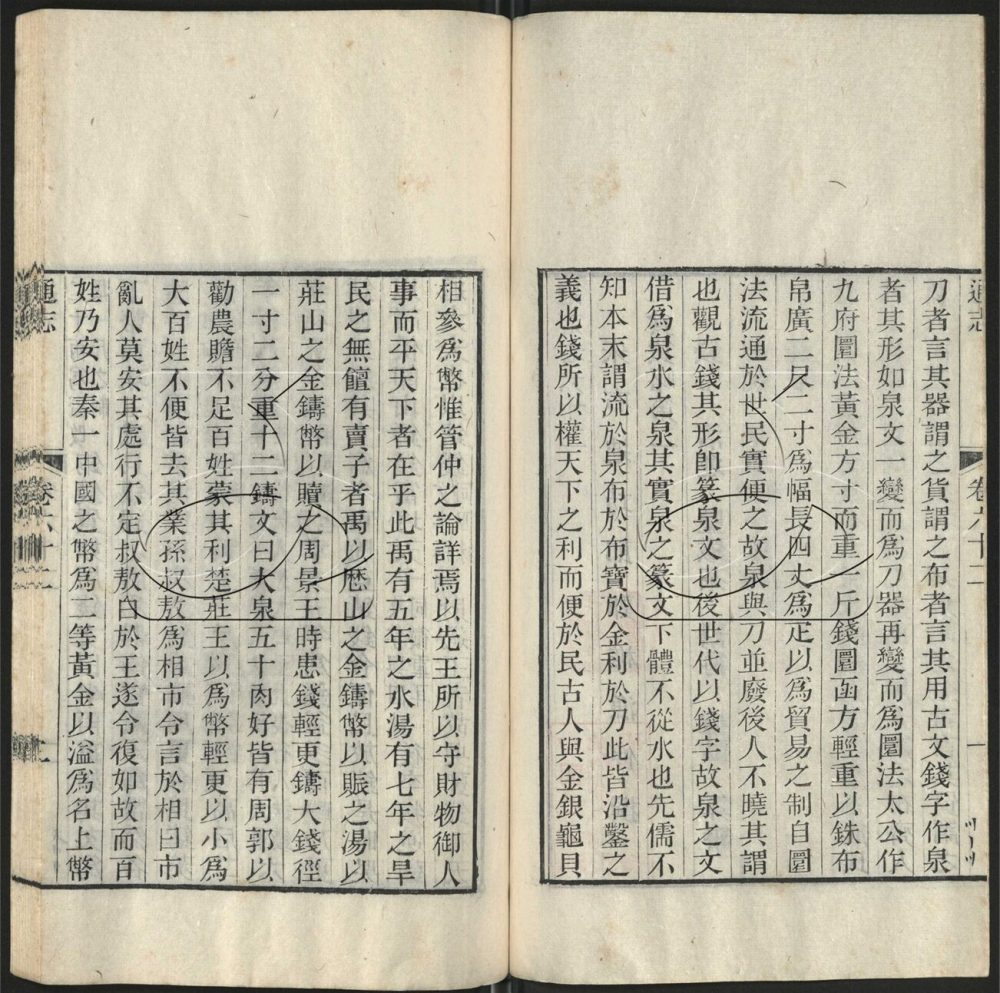 通志
卷六十二
一
刀者言其器謂之貨謂之布者言其用古文錢字作泉
者其形如泉文一變而爲刀器再變而爲圜法太公作
九府圜法黃金方寸而重一斤錢圜函方輕重以銖布
帛廣二尺二寸爲幅長四丈爲疋以爲貿易之制自圜
法流通於世民實便之故泉與刀並廢後人不曉其謂
也觀古錢其形卽篆泉文也後世代以錢字故泉之文
借爲泉水之泉其實泉之篆文下體不從水也先儒不
知本末謂流於泉布於布寶於金利於刀此皆沿鑿之
義也錢所以權天下之利而便於民古人與金銀龜貝
相參爲幣惟管仲之論詳焉以先王所以守財物御人
事而平天下者在乎此禹有五年之水湯有七年之旱
民之無饘有賣子者禹以歷山之金鑄幣以賑之湯以
莊山之金鑄幣以贖之周景王時患錢輕更鑄大錢徑
一寸二分重十二鑄文曰大泉五十肉好皆有周郭以
勸農贍不足百姓蒙其利楚莊王以爲幣輕更以小爲
大百姓不便皆去其業孫叔敖爲相市令言於相曰市
亂人莫安其處行不定叔敖白於王遂令復如故而百
姓乃安也秦一中國之幣爲二等黃金以溢爲名上幣
通志
卷六十二